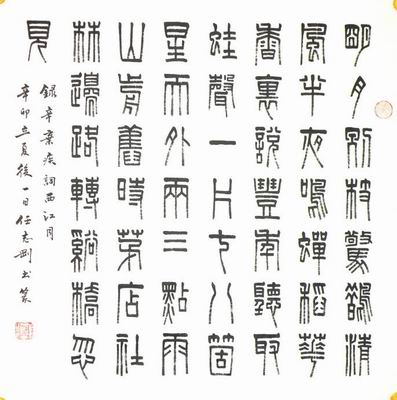 明月別枝驚鵲清
風半夜鳴蟬稻華
香裏說豐年聽取
蛙聲一片七八箇
星天外兩三點雨
山前舊時茅店社
林邊路轉谿橋忽
見
錄辛棄疾詞西江月
辛卯立夏後一日任志剛書篆